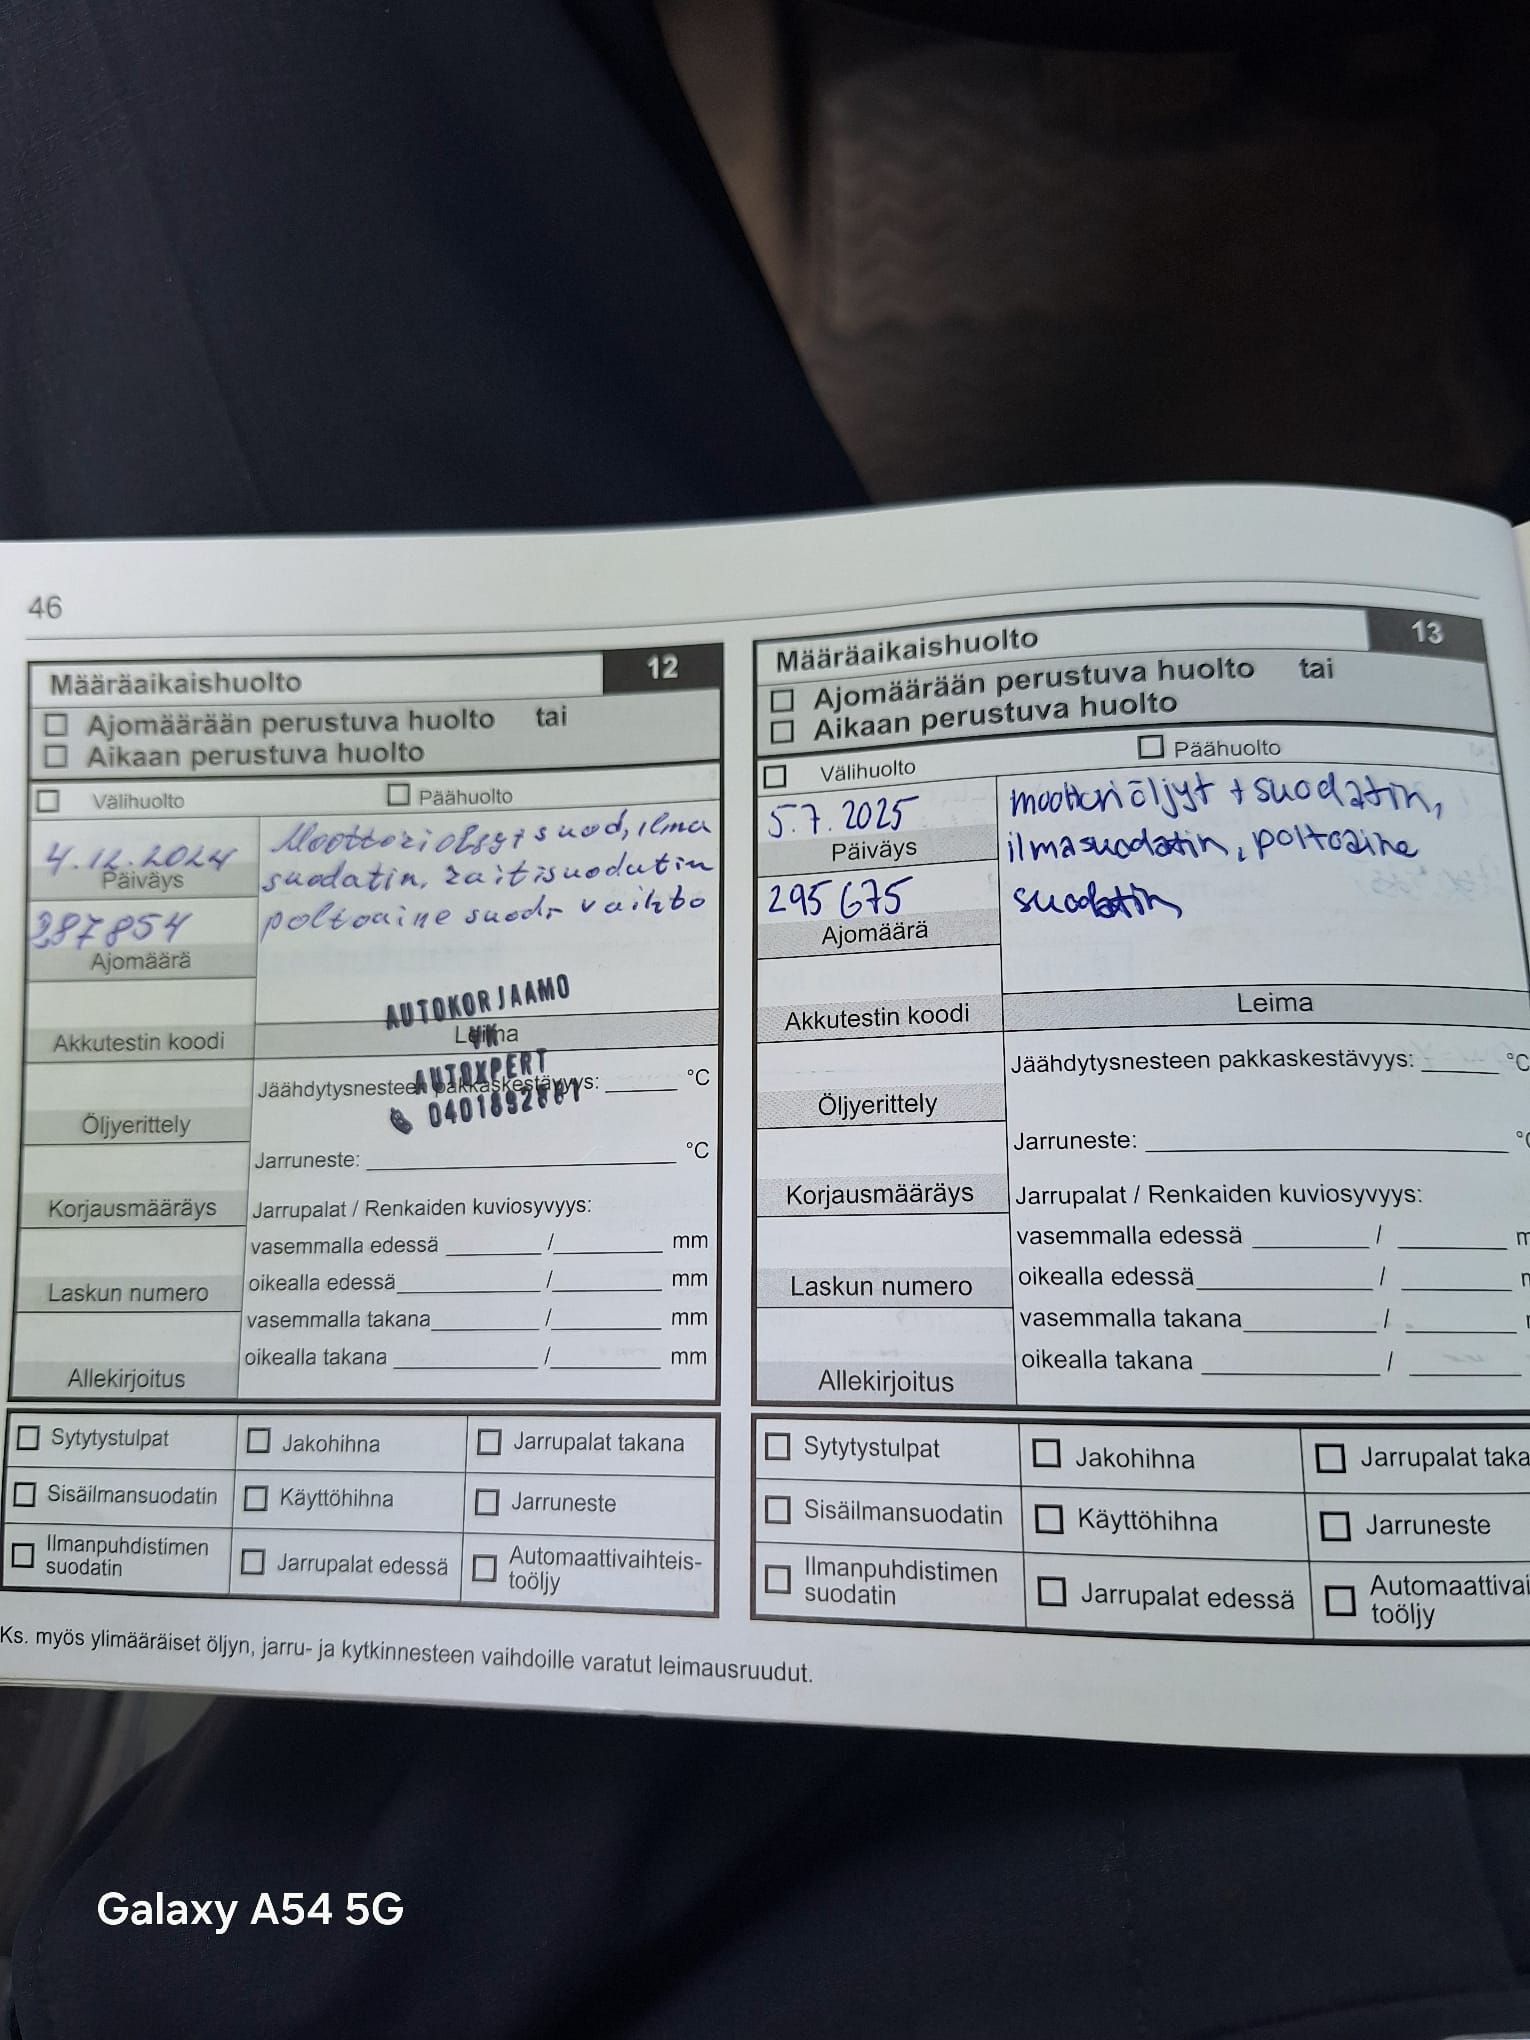 46
Määräaikaishuolto 12
Ajomäärään perustuva huolto tai
Aikaan perustuva huolto
Välihuolto Päähuolto
4.12.2024
Päiväys
287854
Ajomäärä
suod, ilma
suodatin, raitisuodatin
poltoaine suod. vaihto
AUTOKORJAAMO
Leima
AUTOXPERT
Akkutestin koodi
Jäähdytysnesteen pakkaskestävyys: °C
Öljyerittely
Jarruneste: °C
Korjausmääräys
Jarrupalat / Renkaiden kuviosyvyys:
vasemmalla edessä / mm
Laskun numero
oikealla edessä / mm
vasemmalla takana / mm
oikealla takana / mm
Allekirjoitus
Sytytystulpat Jakohihna Jarrupalat takana
Sisäilmansuodatin Käyttöhihna Jarruneste
Ilmanpuhdistimen
suodatin
Jarrupalat edessä
Automaattivaihteis-
toöljy
Määräaikaishuolto 13
Ajomäärään perustuva huolto tai
Aikaan perustuva huolto
Välihuolto Päähuolto
5.7.2025
Päiväys
295675
Ajomäärä
moottoriöljyt + suodatin,
ilmasuodatin, poltoaine
suodatin
Akkutestin koodi
Leima
Jäähdytysnesteen pakkaskestävyys: °C
Öljyerittely
Jarruneste:
Korjausmääräys
Jarrupalat / Renkaiden kuviosyvyys:
vasemmalla edessä /
Laskun numero
oikealla edessä /
vasemmalla takana /
oikealla takana /
Allekirjoitus
Sytytystulpat Jakohihna Jarrupalat taka
Sisäilmansuodatin Käyttöhihna Jarruneste
Ilmanpuhdistimen
suodatin
Jarrupalat edessä
Automaattivai
toöljy
Ks. myös ylimääräiset öljyn, jarru- ja kytkinnesteen vaihdoille varatut leimausruudut.
Galaxy A54 5G